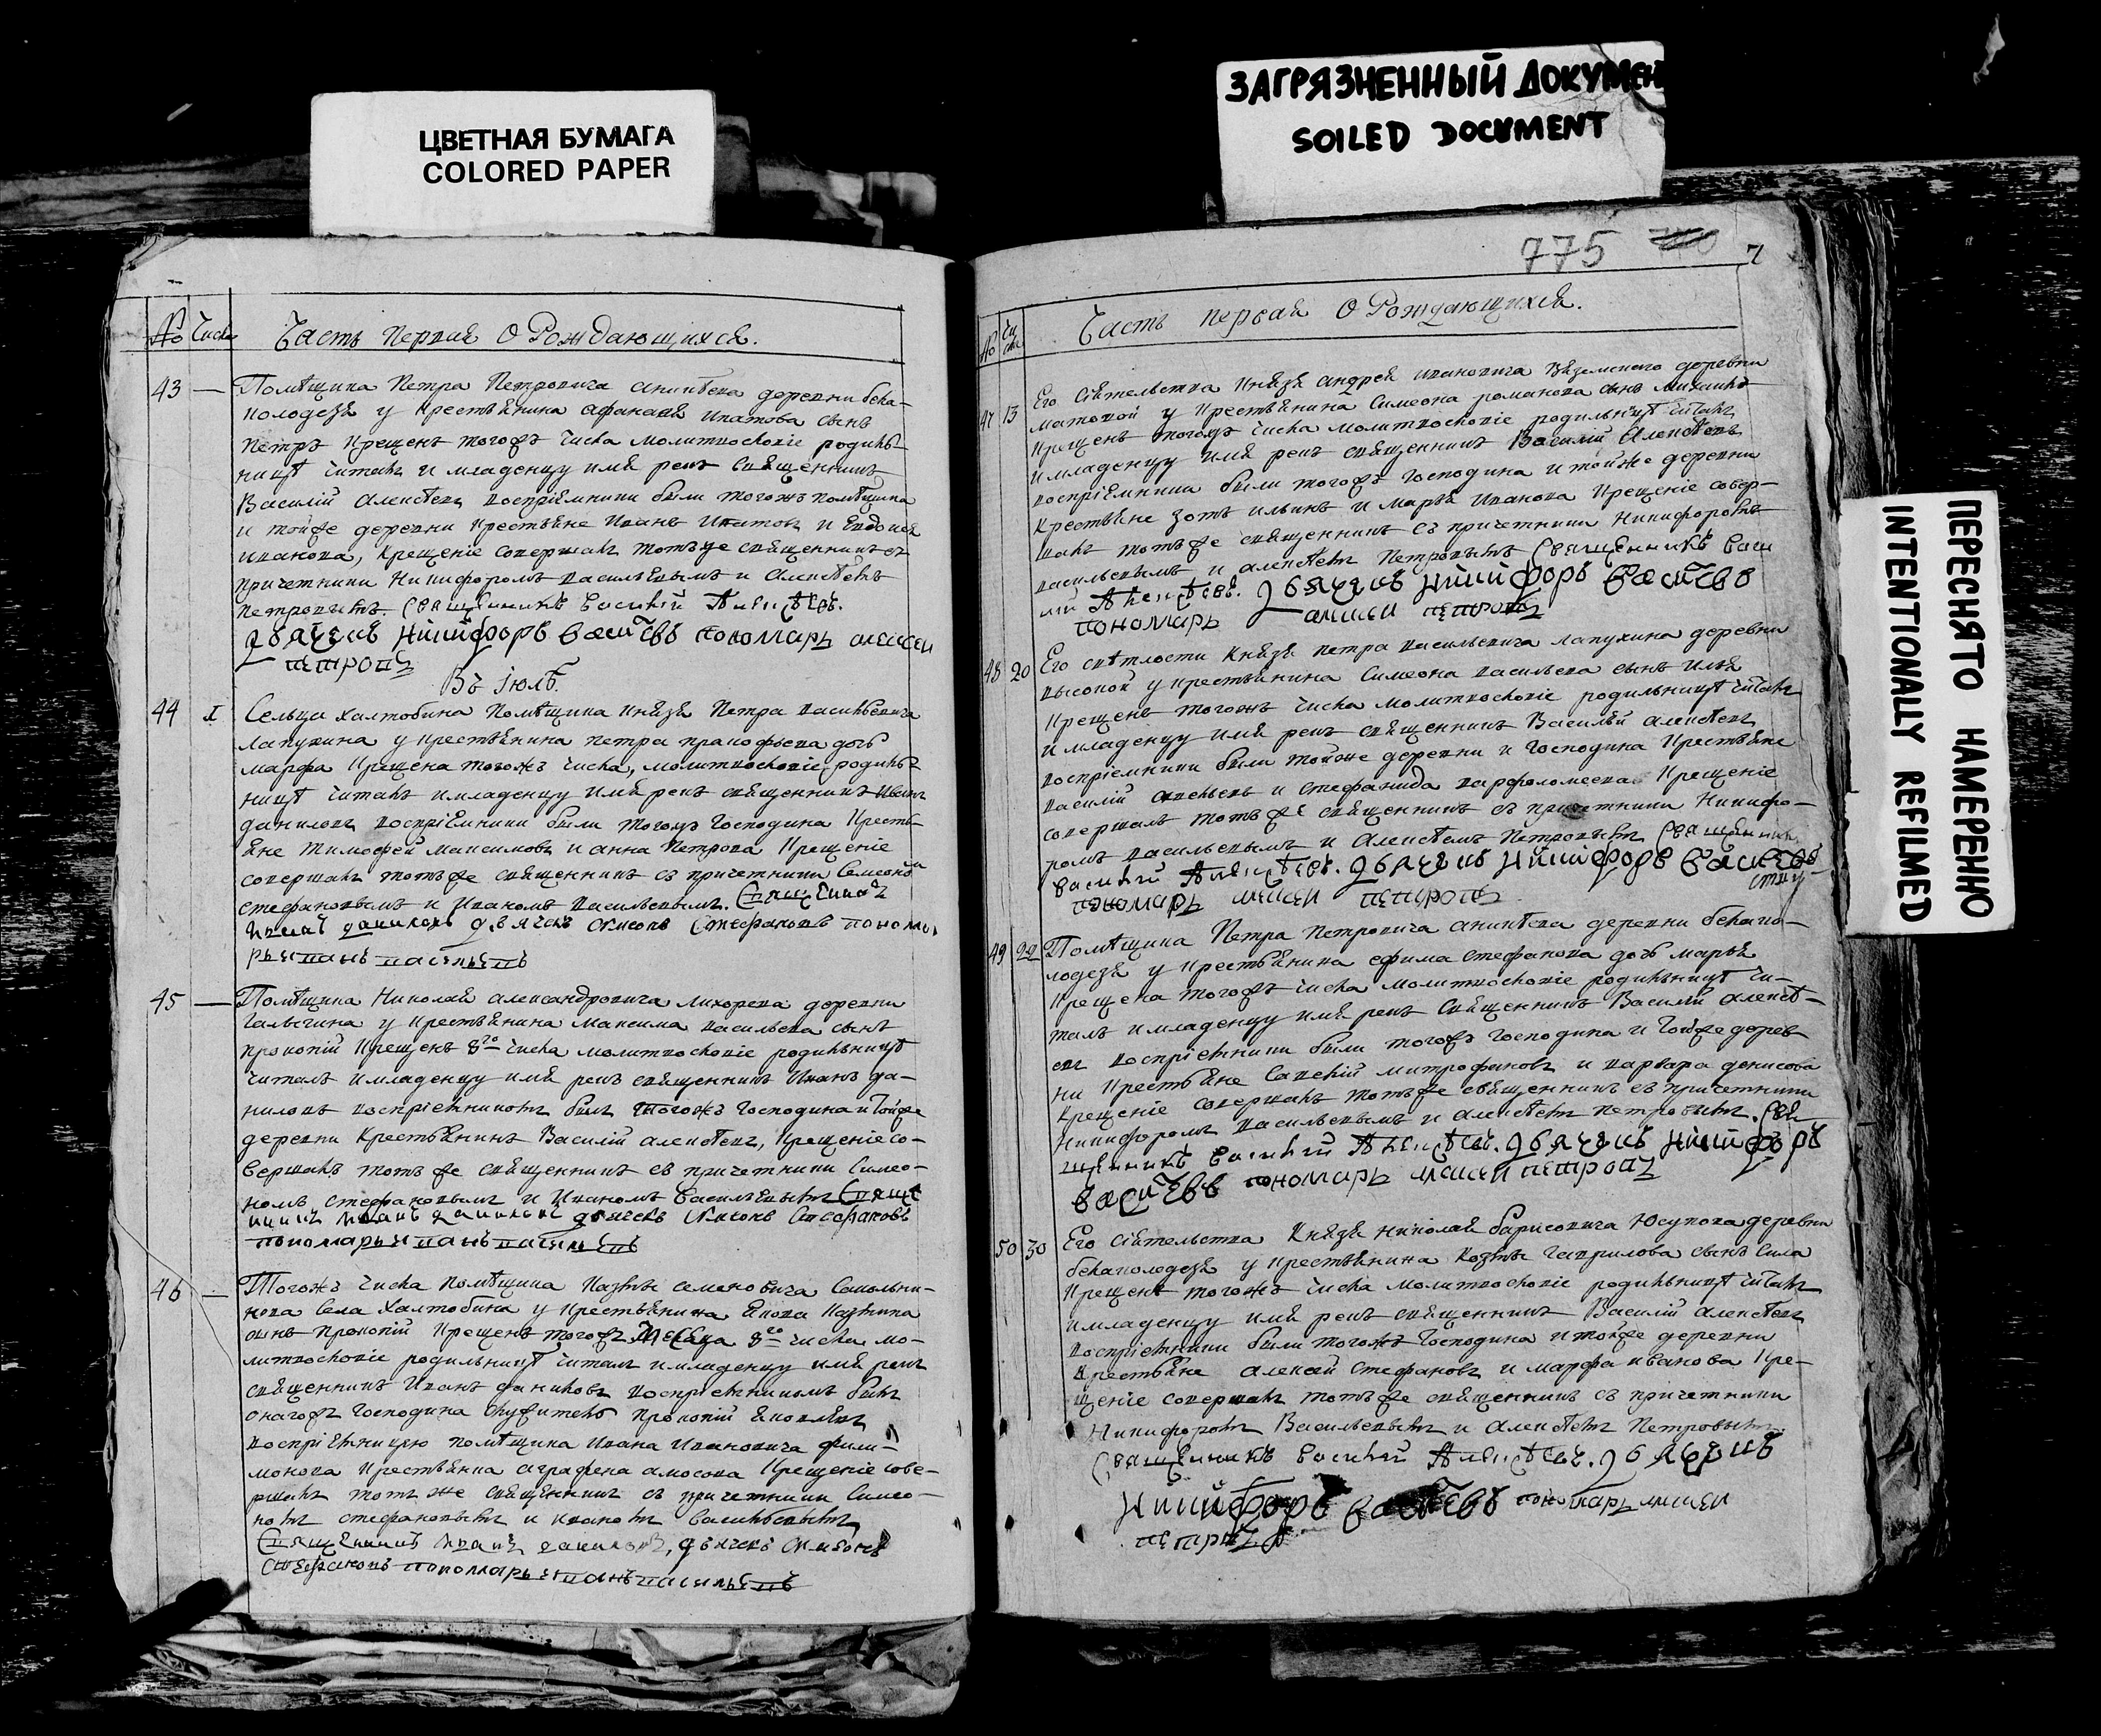 ЦВЕТНАЯ БУМАГА
COLORED PAPER
ЗАГРЯЗНЕННЫЙ ДОКУМЕН
SOILED DOCUMENT
ПЕРЕСНЯТО НАМЕРЕННО
INTENTIONALLY REFILMED
№ Числа Часть Первая О Рождающихся.
43 — Помѣщика Петра Петровича Аникѣева деревни бѣла-
колодезя у крестьянина афанасья ипатова сынъ
Петръ крещенъ тогожъ числа молитвословіе родиль-
ницѣ читалъ и младенцу имя рекъ священникъ
Василій алексѣевъ воспріемники были тогожъ помѣщика
и тойже деревни крестьяне Иванъ Ипатовъ и Евдокея
иванова, крещеніе совершалъ тотъже священникъ съ
причетники Никифоромъ васильевымъ и алексѣемъ
Петровымъ. Священникъ Василий Алексѣевъ.
дьячекъ Никифоръ Васильевъ пономарь алексей
петровъ
Въ Iюлѣ.
44 1 Сельца халтобина Помѣщика князя Петра васильевича
Лапухина у крестьянина петра пракофьева дочь
марфа крещена тогожъ числа, молитвословіе родиль-
ницѣ читалъ и младенцу имя рекъ священникъ Иванъ
даниловъ воспріемники были тогожъ господина кресть-
яне Тимофей Максимовъ и анна Петрова крещеніе
совершалъ тотъже священникъ съ причетники Семеономъ
стефановымъ и Иваномъ васильевымъ. Священникъ
Иванъ даниловъ дьячекъ Симеонъ Стефановъ понома
рь иванъ васильевъ
45 — Помѣщика Николая александровича Лихорева деревни
Галычина у крестьянина Максима васильева сынъ
прокопій крещенъ 8го числа молитвословіе родильницѣ
читалъ и младенцу имя рекъ священникъ Иванъ да-
ниловъ воспріемникомъ былъ тогожъ господина и тойже
деревни крестьянинъ Василій алексѣевъ, крещеніе со-
вершалъ тотъ же священникъ съ причетники Симео-
номъ стефановымъ и Иваномъ Васильевымъ Свяще
нникъ Иванъ даниловъ дьячекъ Симеонъ Стефановъ
пономарь иванъ васильевъ
46 — Тогожъ числа помѣщика Казмы семеновича Сокольни-
кова села Халтобина у крестьянина Якова Казмина
сынъ прокопій крещенъ тогожъ месяца 8го числа мо-
литвословіе родильницѣ читалъ и младенцу имя рекъ
священникъ Иванъ даниловъ воспріемникомъ былъ
онагожъ господина служитель прокопій Яковлевъ
воспріемницею помѣщика Ивана Ивановича фили-
монова крестьянка аграфена амосова крещеніе сове-
ршалъ тотъ же священникъ съ причетники Симео-
номъ стефановымъ и иваномъ васильевымъ
Священникъ Иванъ даниловъ, дьячекъ Симеонъ
Стефановъ пономарь иванъ васильевъ
775 7
№ Числа Часть первая О Рождающихся.
47 13 Его Сіятельства Князя андрея ивановича Вяземскаго деревни
матовой у крестьянина Симеона романова сынъ Михаилъ
крещенъ тогожъ числа молитвословіе родильницѣ читалъ
и младенцу имя рекъ священникъ Василій Алексѣевъ
воспріемники были тогожъ господина и тойже деревни
крестьяне зотъ ильинъ и марья иванова крещеніе совер-
шалъ тотъже священникъ съ причетники Никифоромъ
васильевымъ и алексѣемъ Петровымъ Священникъ Васи
лій Алексѣевъ. дьячекъ Никифоръ Васильевъ
пономарь алексей петровъ
48 20 Его свѣтлости Князя петра васильевича лапухина деревни
высокой у крестьянина Симеона васильева сынъ илья
крещенъ тогожъ числа молитвословіе родильницѣ читалъ
и младенцу имя рекъ священникъ Василій алексѣевъ
воспріемники были тойже деревни и господина крестьяне
василій савельевъ и стефанида варфоломеева крещеніе
совершалъ тотъже священникъ съ причетники Никифо-
ромъ васильевымъ и алексѣемъ петровымъ Священникъ
василий Алексѣевъ. дьячекъ Никифоръ Васильевъ
пономарь алексей петровъ
49 22 Помѣщика Петра Петровича аникѣева деревни бѣлако-
лодезя у крестьянина ефима стефанова дочь марья
крещена тогожъ числа молитвословіе родильницѣ чи-
талъ и младенцу имя рекъ священникъ Василій алексѣ-
евъ воспріемники были тогожъ господина и тойже дерев
ни крестьяне Савелій митрофановъ и варвара денисова
крещеніе совершалъ тотъже священникъ съ причетники
никифоромъ васильевымъ и алексѣемъ петровымъ. Свя
щенникъ Василий Алексѣевъ. дьячекъ Никифоръ
Васильевъ пономарь алексей петровъ
50 30 Его Сіятельства Князя николая барисовича Юсупова деревни
бѣлаколодезя у крестьянина козмы гаврилова сынъ Сила
крещенъ тогожъ числа молитвословіе родильницѣ читалъ
и младенцу имя рекъ священникъ Василій алексѣевъ
воспріемники были тогожъ господина и тойже деревни
крестьяне алексей стефановъ и марфа иванова кре-
щеніе совершалъ тотъже священникъ съ причетники
Никифоромъ Васильевымъ и алексѣемъ Петровымъ
Священникъ Василий Алексѣевъ. дьячекъ
Никифоръ Васильевъ пономарь алексей
петровъ